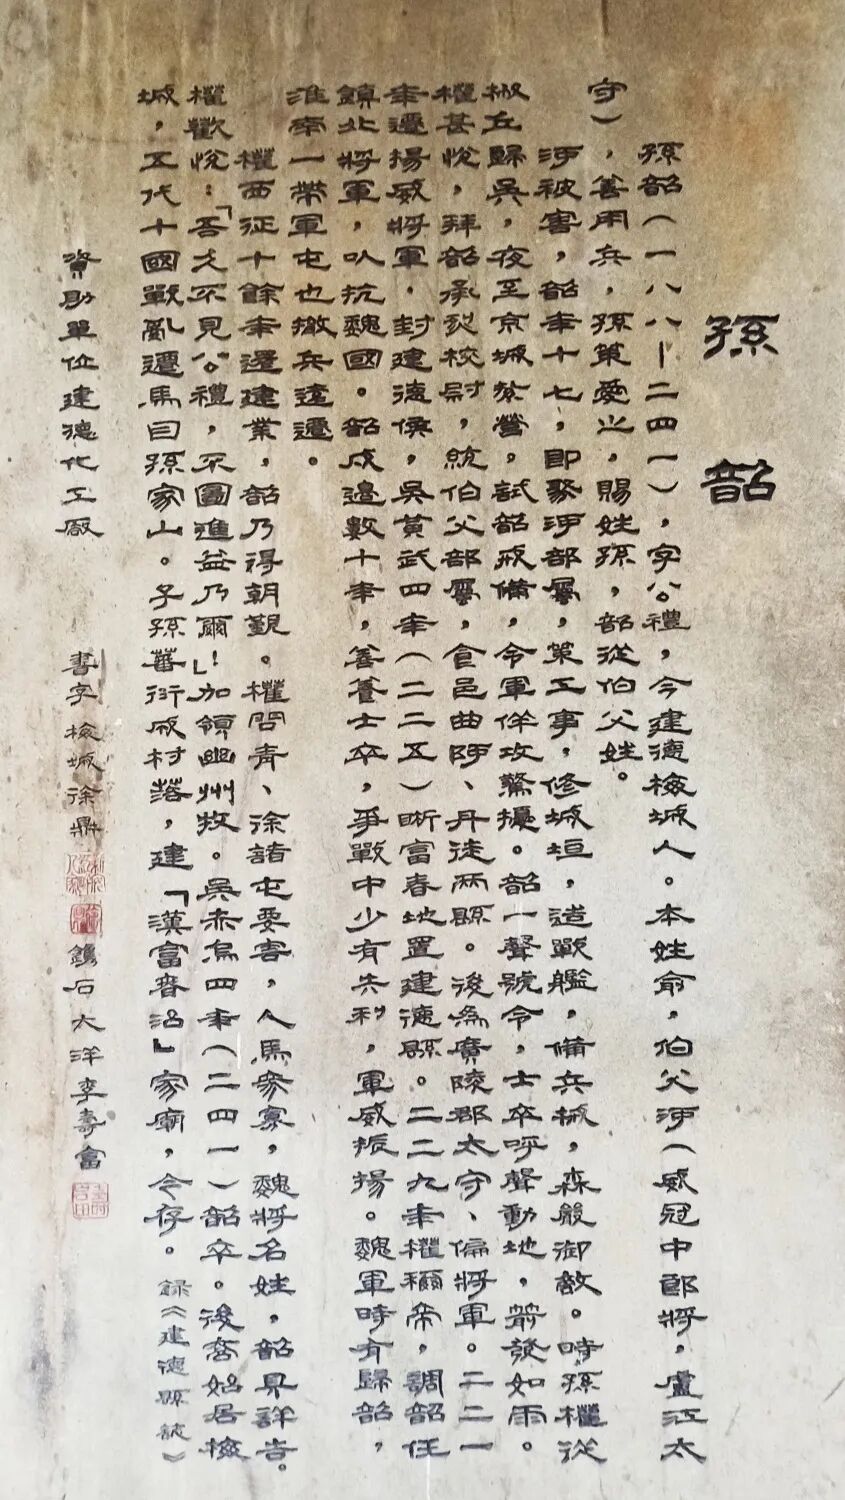 孫韶
孫韶（一八八—二四一），字公禮，今建德梅城人。本姓俞，伯父河（威冠中郎將，盧江太
守），善用兵，孫策愛之，賜姓孫，韶從伯父姓。
河被害，韶年十七，即聚河部屬，策工事，修城垣，造戰艦，備兵械，森嚴御敵。時孫權從
椒丘歸吳，夜至京城紮營，試韶戒備，令軍佯攻驚擾。韶一聲號令，士卒呼聲動地，箭發如雨。
權甚悅，拜韶承烈校尉，統伯父部屬，食邑曲阿、丹徒兩縣。後為廣陵郡太守、偏將軍。二二一
年遷揚威將軍，封建德侯，吳黃武四年（二二五）晣富春地置建德縣。二二九年權稱帝，調韶任
鎮北將軍，以抗魏國。韶戍邊數十年，善養士卒，爭戰中少有失利，軍威振揚。魏軍時有歸韶，
淮南一帶軍屯也撤兵遠遷。
權西征十餘年還建業，韶乃得朝覲。權問青、徐諸屯要害，人馬眾寡，魏將名姓，韶具詳告。
權歡悅：「吾久不見公禮，不圖進益乃爾！」加領幽州牧。吳赤烏四年（二四一）韶卒。後裔始居梅
城，五代十國戰亂遷馬目孫家山。子孫蕃衍成村落，建「漢富春沿」家廟，今存。錄《建德縣誌》
資助單位建德化工廠
書字梅城徐鼎
鐫石大洋李壽富